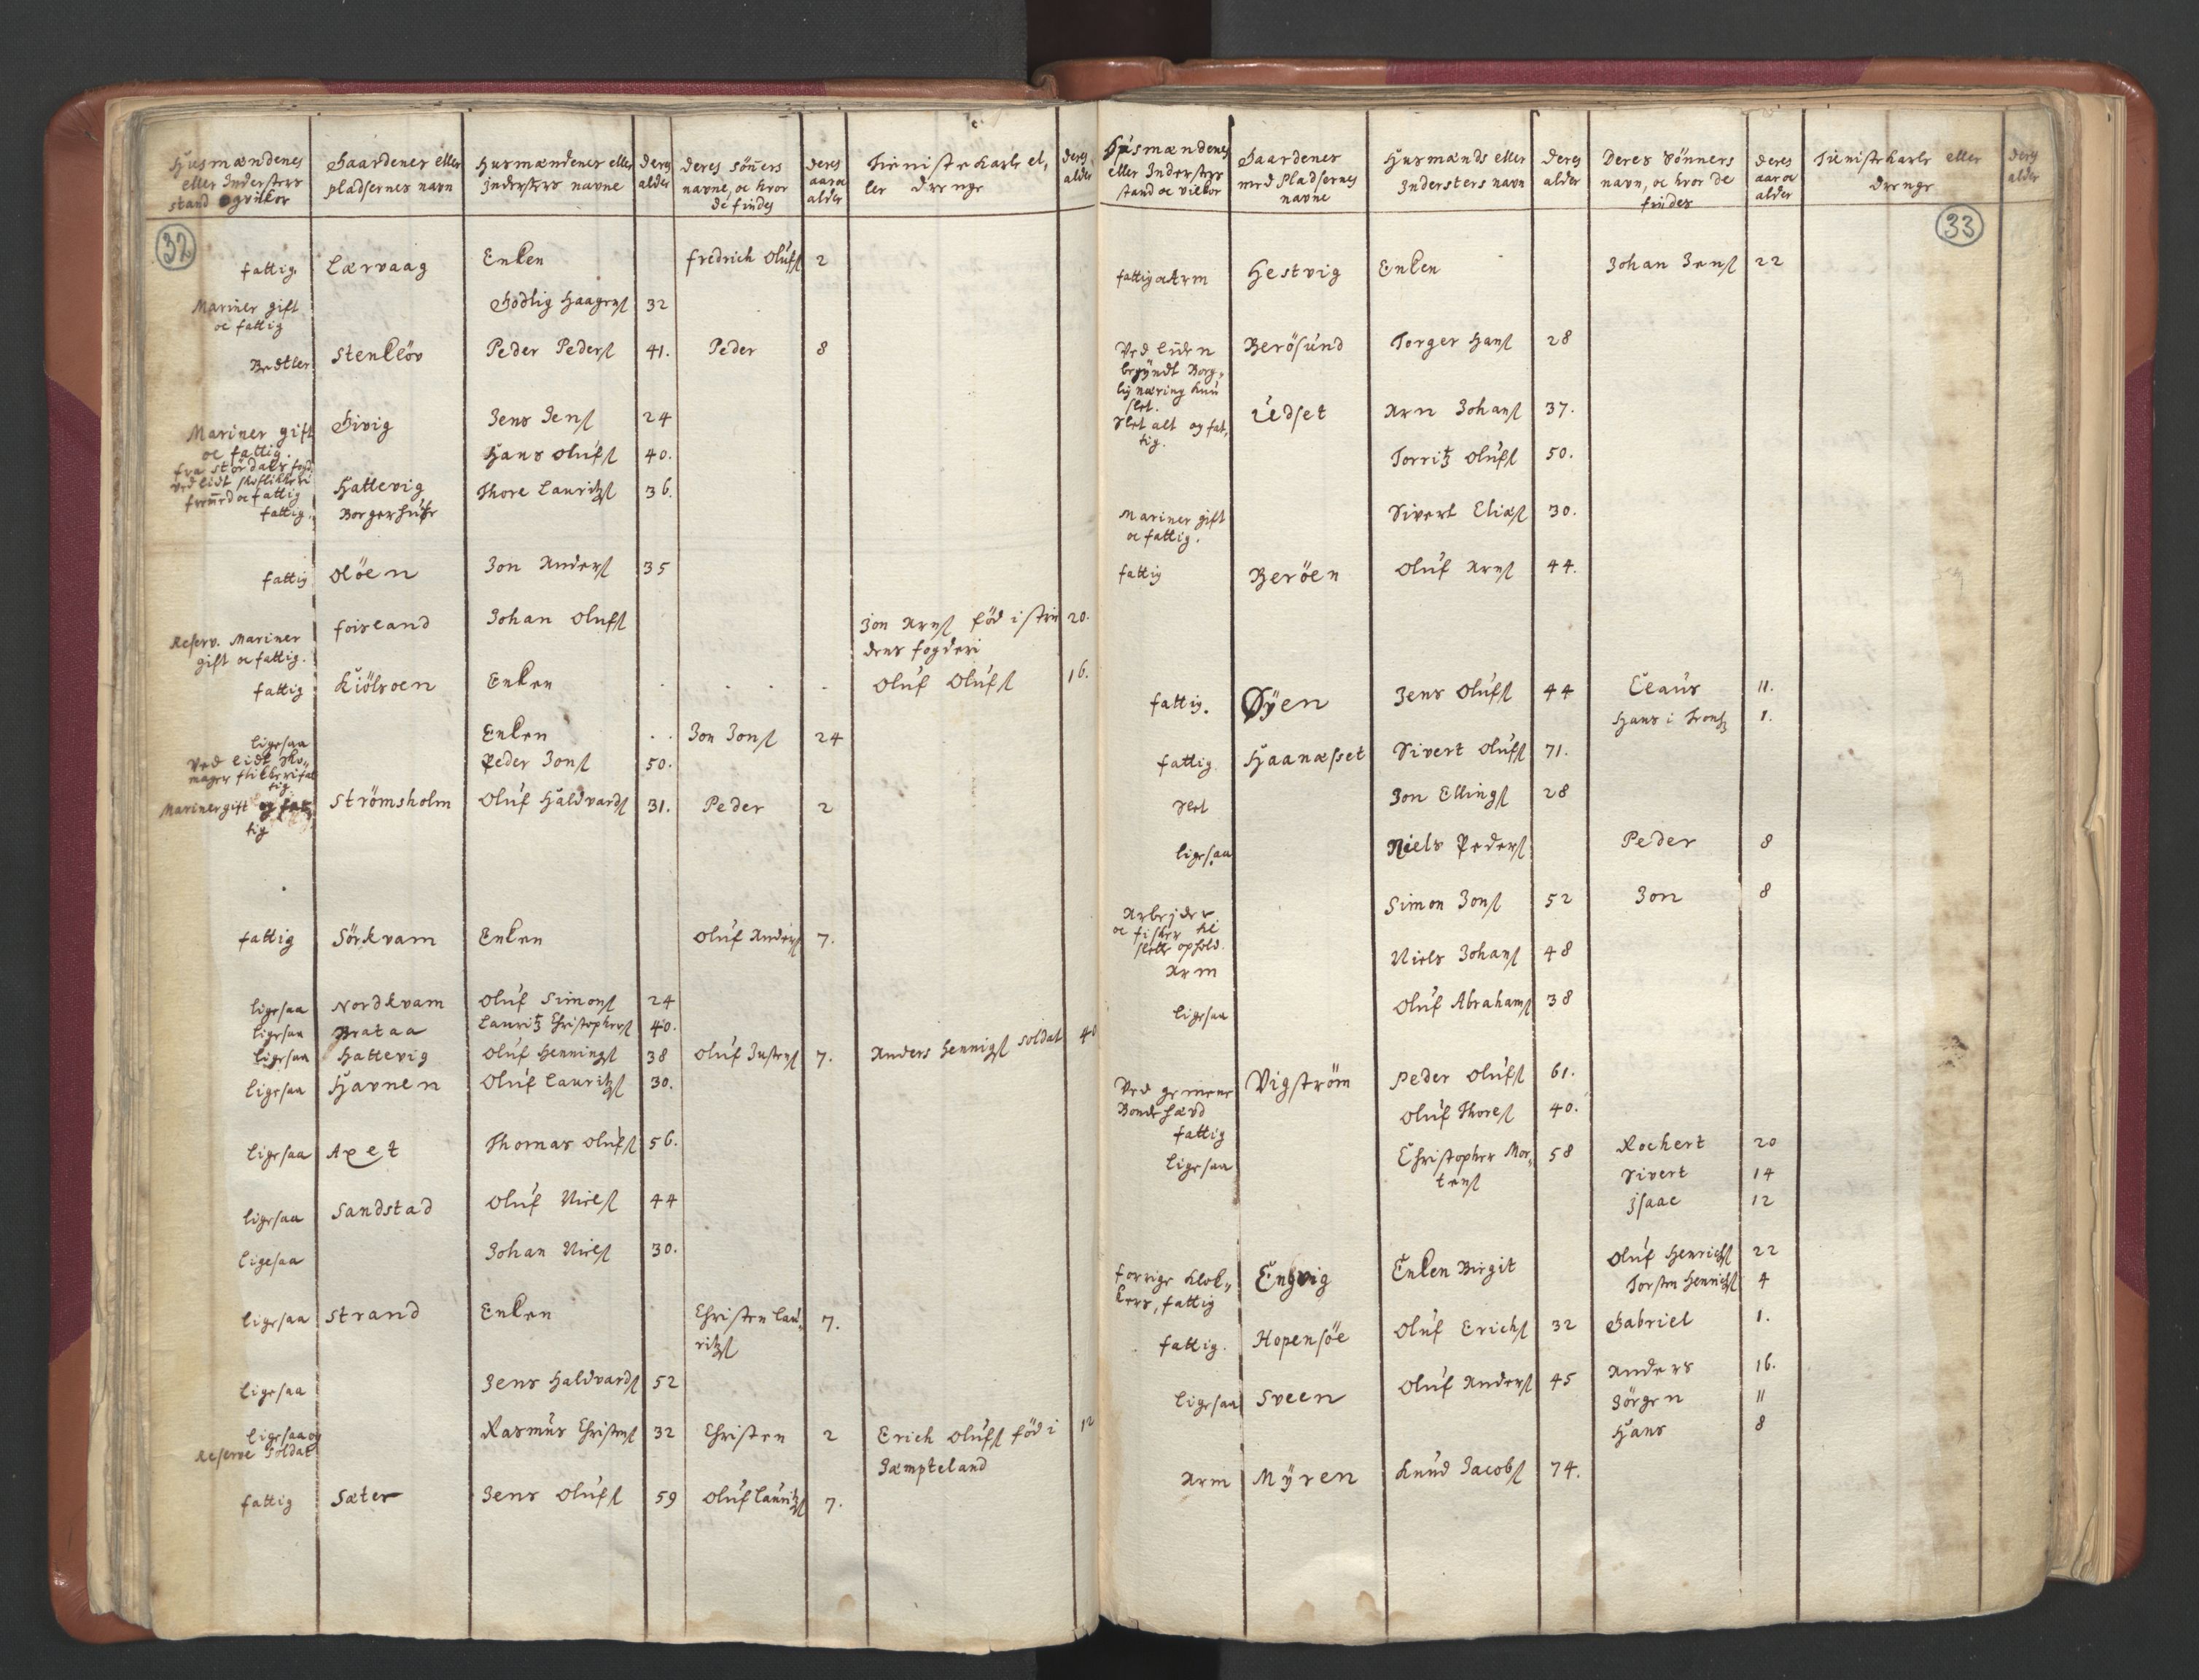 Husmændenes eller Indersters stand og vilkor | Gaardenes eller pladsernes navn | Husmændenes eller Indersters navne | deres alder | deres sönners navne, oc hvor de findes | deres aar oc alder | Tieniste karle eller drenge | deres alder
32
fattig | Lærvaag | Enken | | fredrich Olufs | 2
Mariner gift oc fattig | | Godlig Haagens | 32
Bedtler | Stenkløv | Peder Peders | 41. | Peder | 8
Mariner gift oc fattig. | Givig | Jens Jens | 24
fra Stördals fogd. | | Hans Olufs | 40.
ved lidt skoflikkeri fremed oc fattig | Hattevig | Thore Lauritzs | 36.
fattig. | Borgerhuse
fattig | Olöen | Jon Anders | 35
Reserv. Mariner gift oc fattig. | foisland | Johan Olufs | | | | Jon Arns föd i strindens fogderi | 20.
fattig | Kiölsoen | Enken | . | . . | . | Oluf Olufs | 16.
ligesaa | | Enken | . . | Jon Jons | 24
Ved lidt skomager flikkeri fattig | | Peder Jons | 50.
Mariner gift og fattig | Strömsholm | Oluf Haldvards | 31. | Peder | 2
fattig | Sörkvam | Enken | | Oluf Anders | 7.
ligesaa | Nordkvam | Oluf Simons | 24
ligesaa | Brataa | Lauritz Christophers | 40.
ligesaa | Hattevig | Oluf Hennings | 38 | Oluf Justens | 7. | Anders Hennigs soldat | 40
ligesaa | Havnen | Oluf Lauritzs | 30.
ligesaa | Axet | Thomas Olufs | 56.
ligesaa | Sandstad | Oluf Niels | 44
ligesaa | | Johan Niels | 30.
ligesaa | Strand | Enken | | Christen Lauritzs | 7.
ligesaa | | Jens Haldvards | 52
ligesaa og Reserve Soldat | | Rasmus Christens | 32 | Christen | 2 | Erich Olufs föd i Jæmpteland | 12
fattig | Sæter | Jens Olufs | 59 | Oluf Lauritzs | 7.
Husmændenes eller Indersters stand oc vilkor | Gaardenes med Pladsernes navne | Husmænds eller Indersters navn | deres alder | Deres Sönners navn, oc hvor de findes | deres aar oc alder | Tieniste karle eller drenge | deres alder
33
fattig oc Arm | Hestvig | Enken | | Johan Jens | 22
Ved liden begyndt Borglig næring kun slet. | Berösund | Torger Hans | 28
slet alt og fattig. | Udset | Arn Johans | 37.
Torritz Olufs | 50.
Mariner gift oc fattig. | | Sivert Elias | 30.
fattig | Beröen | Oluf Arns | 44.
fattig. | Øÿen | Jens Olufs | 44 | Claus | 11.
Hans i Tronh | 1.
fattig | Haanæsset | Sivert Olufs | 71.
slet | | Jon Ellings | 28
ligesaa | | Niels Peders | | Peder | 8
Arbejder oc fisker til slette ophold. | | Simon Jons | 52 | Jon | 8
Arm | | Niels Johans | 48
ligesaa | | Oluf Abrahams | 38
Ved gemene Bonde færd | Vigström | Peder Olufs | 61.
fattig | | Oluf Thores | 40.
ligesaa | | Christopher Mortens | 58 | Rochert | 20
Sivert | 14
Isaac | 12
forrige Klokkers, fattig | Engvig | Enken Birgit | | Oluf Henrichs | 22
Torsten Henrichs | 4
fattig. | Hopensöe | Oluf Erichs | 32 | Gabriel | 1.
ligesaa | Sveen | Oluf Anders | 45 | Anders | 16.
Jörgen | 11
Hans | 8
Arm | Mÿren | Knud Jacobs | 74.